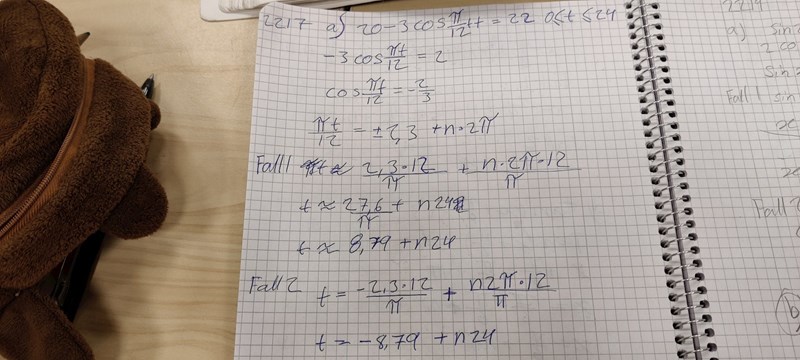 2217 a) 20-3cos π/12 t = 22 0≤t≤24
-3cos πt/12 = 2
cos πt/12 = -2/3
πt/12 = ±2,3 + n·2π
Fall 1 t ≈ 2,3·12/π + n·2π·12/π
t ≈ 27,6/π + n24
t ≈ 8,79 + n24
Fall 2 t = -2,3·12/π + n2π·12/π
t = -8,79 + n24
2219
a) Sin
2 co
Sin
Fall 1 sin
Fall 2
(b)